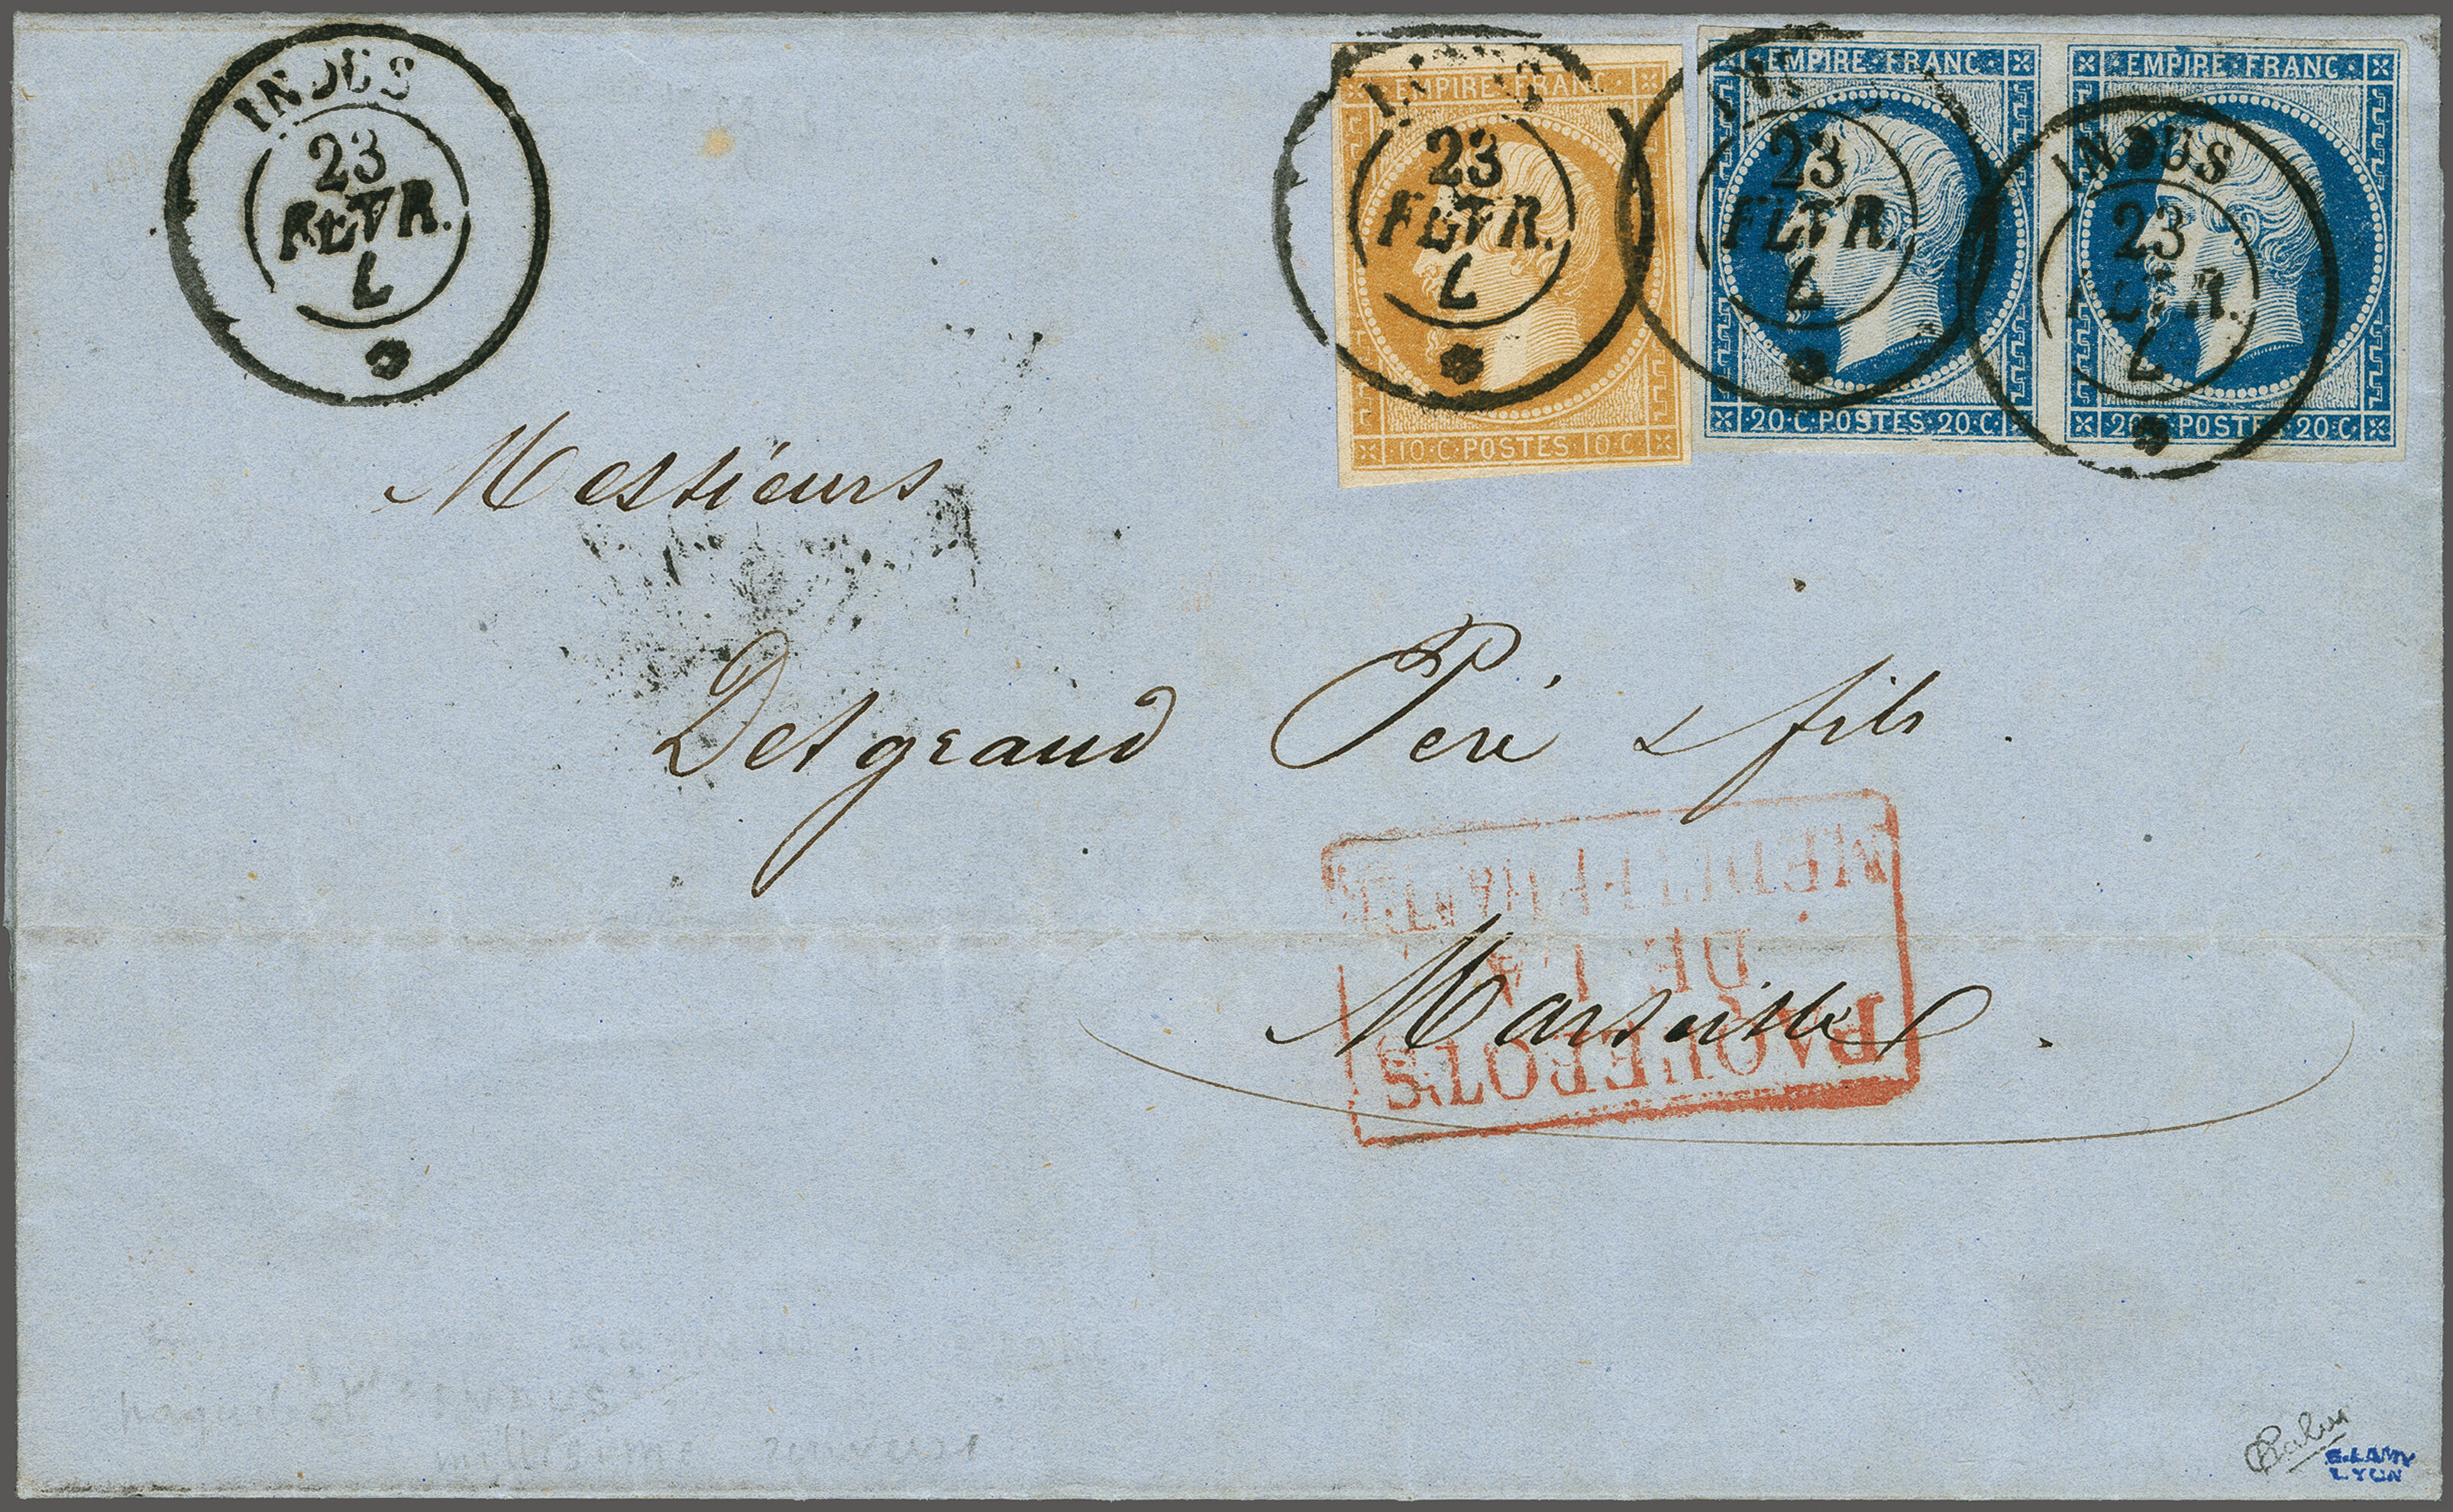 INDUS
23
FEVR.
L
INDUS
23
FEVR.
L
EMPIRE · FRANC ·
10 · C · POSTES · 10 · C ·
23
FEVR.
L
EMPIRE · FRANC ·
20 · C · POSTES · 20 · C ·
INDUS
23
FEVR.
L
EMPIRE · FRANC ·
20 · C · POSTES · 20 · C ·
Messieurs
Desgrand Peré & fils.
Marseille.
PAQUEBOTS
DE LA
MEDITERRANÉE
paquebot "INDUS"
millésime renversé
Calves
E. LAMY
LYON